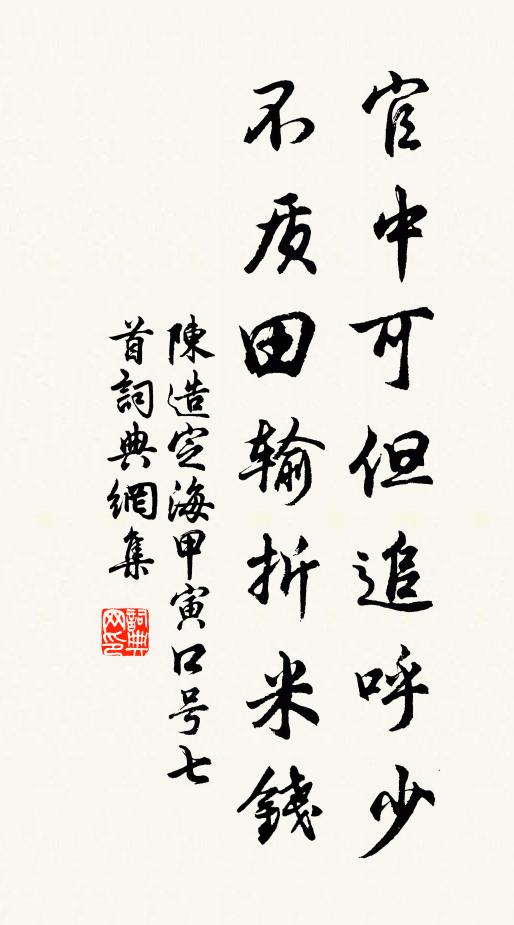 官中可但追呼少
不质田输折米錢
陳造定海甲寅口号七
首詞典網集
詞典
网印